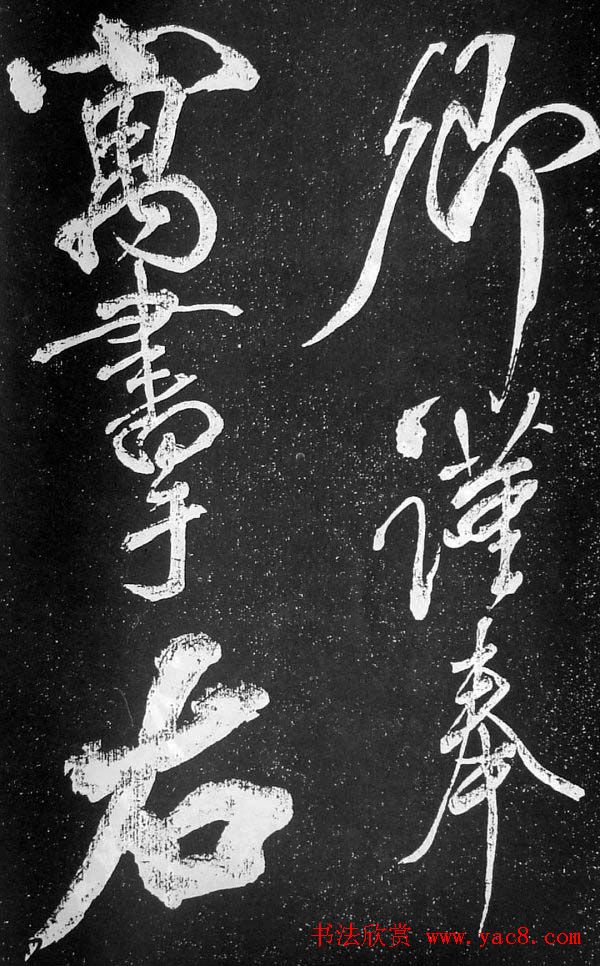 卿謹奉
寓書于右
书法欣赏 www.yac8.com